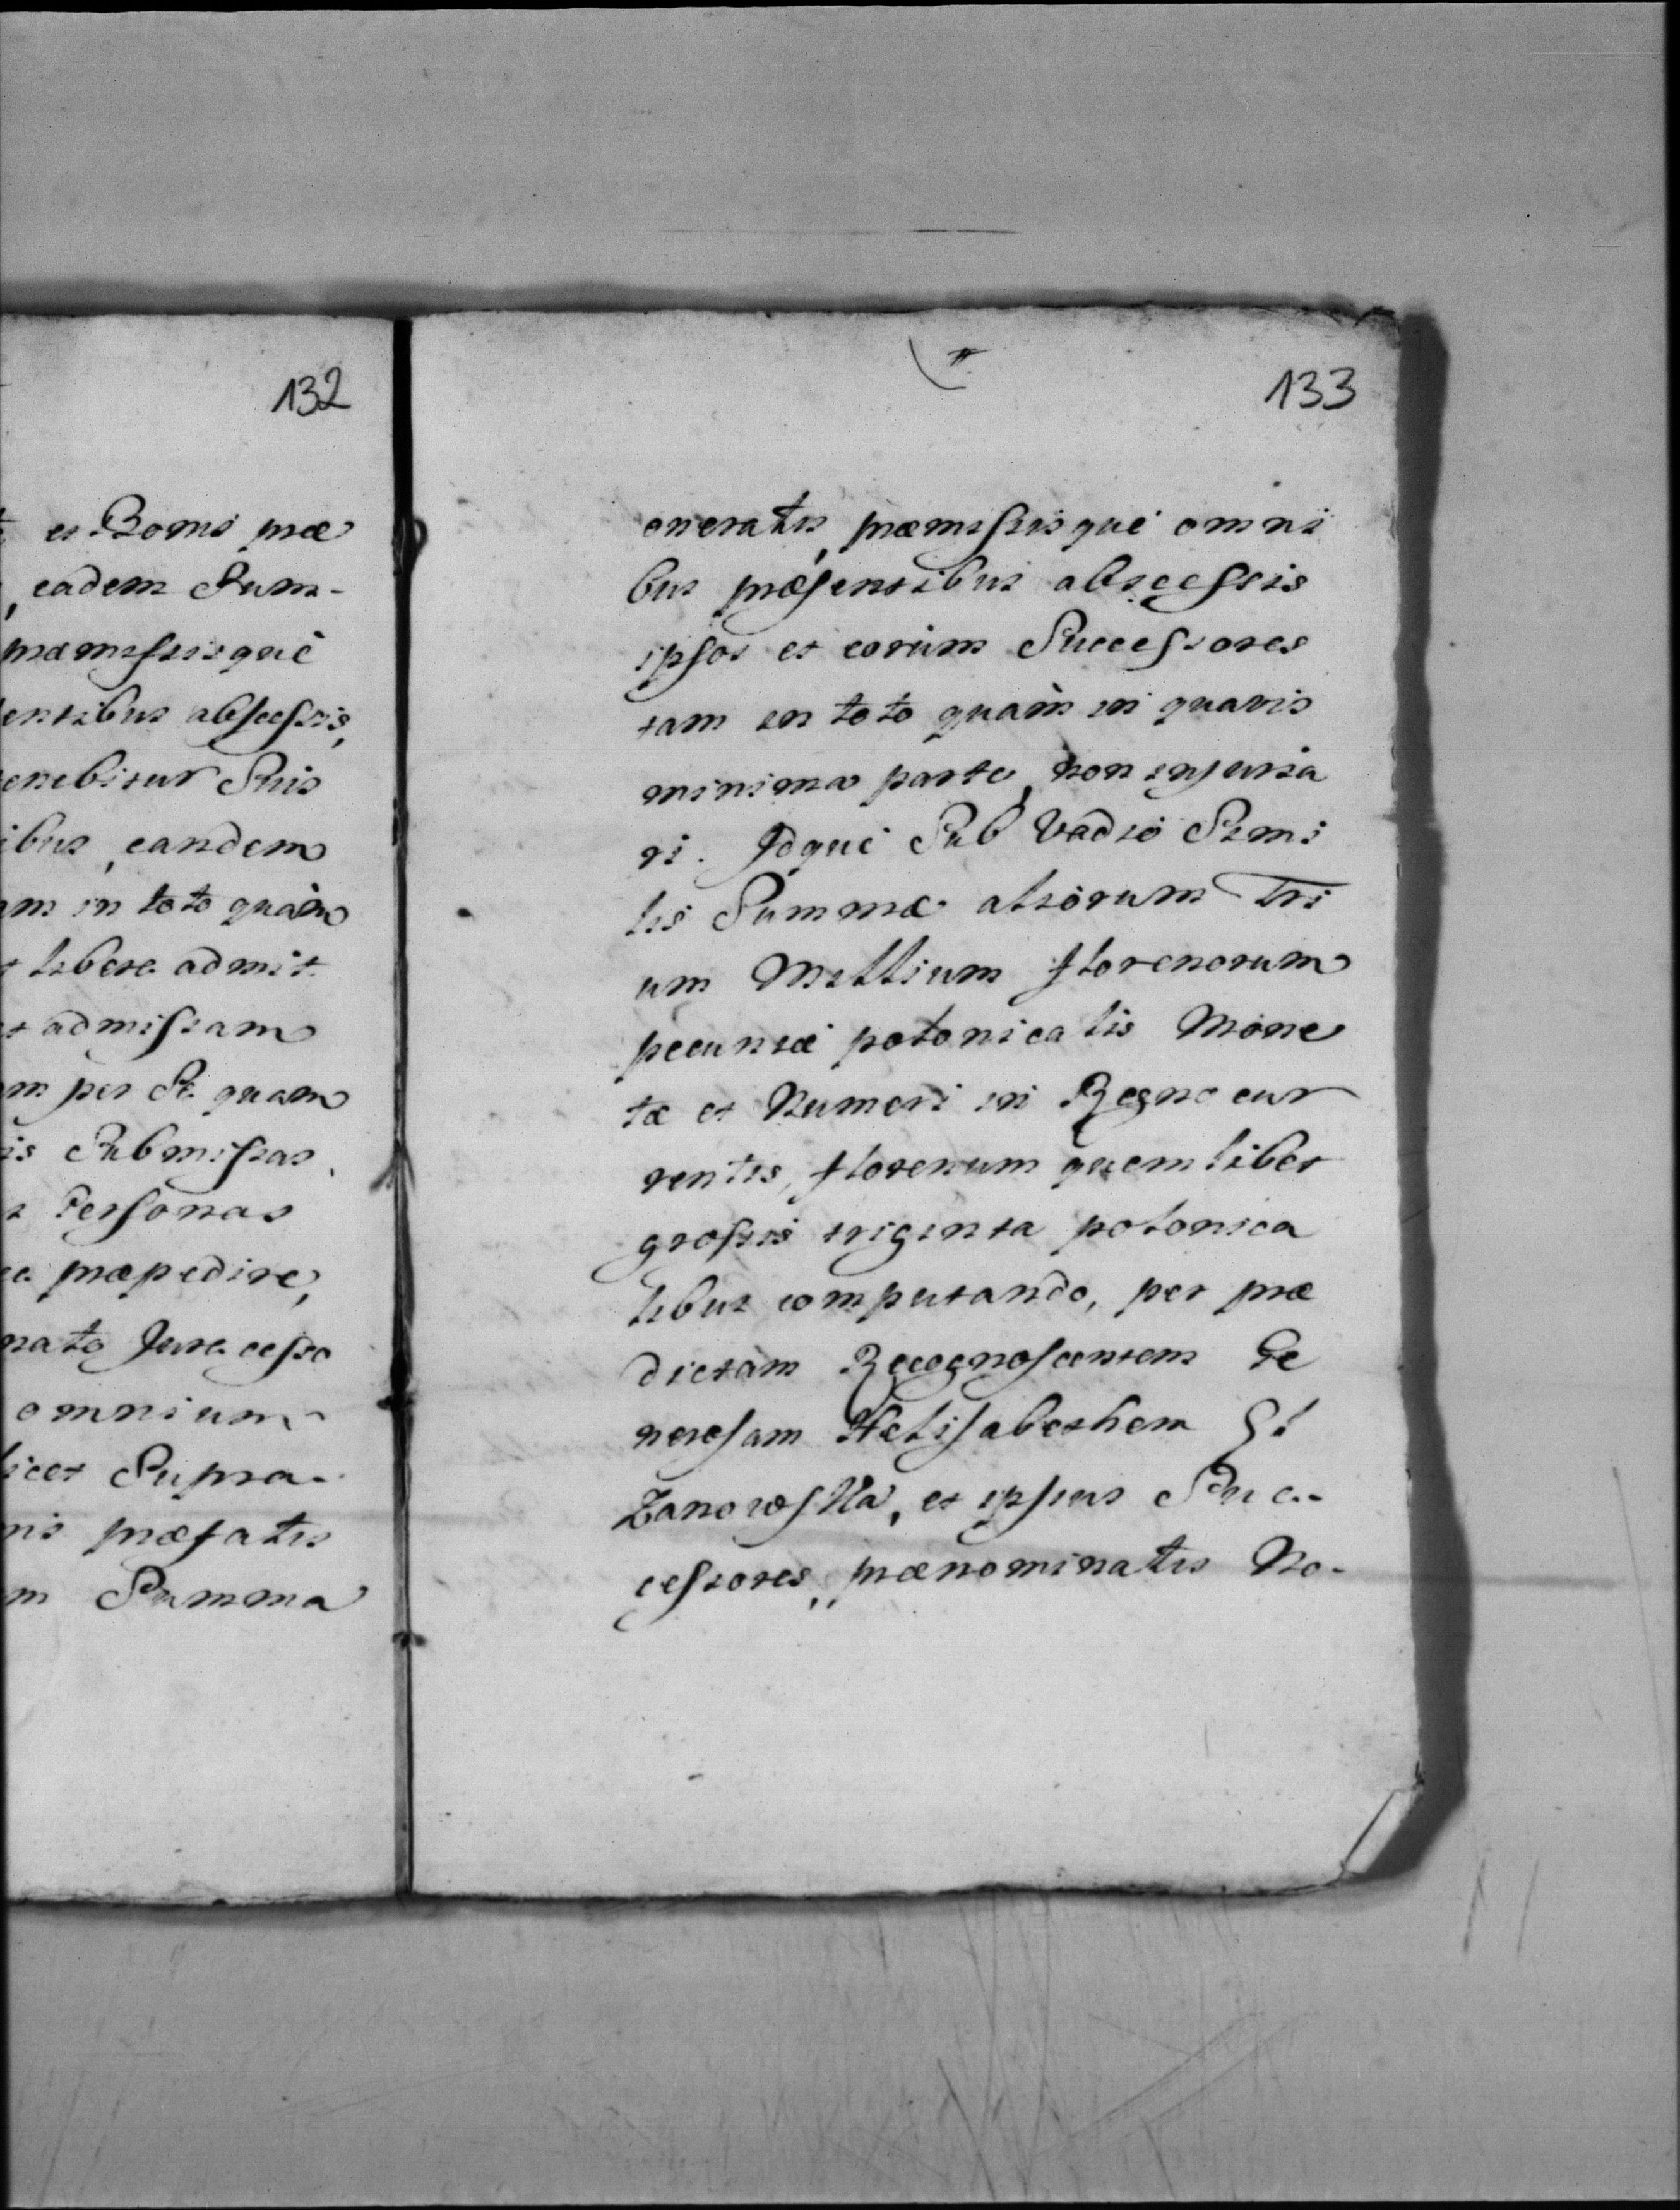 132
et Bonis præ
eadem Sum-
præmissisque
entibus abscessis,
enebitur Suis
ibus, eandem
am in toto quàm
t libere admit
et admissam
m per Se quam
is Submissas
Personas
præpedire,
nato Jure cesso
omnium
licet Supra-
nis præfatis
m Summa
133
oneratis, præmissisque omni
bus præsentibus abscessis
ipsos et eorum Successores
tam in toto quàm in quavis
minima parte, non injuria
ri. Idque Sub Vadio Simi
lis Summæ aliorum Tri
um Millium florenorum
pecuniæ polonicalis Mone
tæ et Numeri in Regno cur
rentis, florenum quemlibet
grossis triginta polonica
libus computando, per præ
dictam Recognoscentem Ge
nerosam Helisabethem Gl
Zanowska, et ipsius Suc-
cessores, prænominatis No-